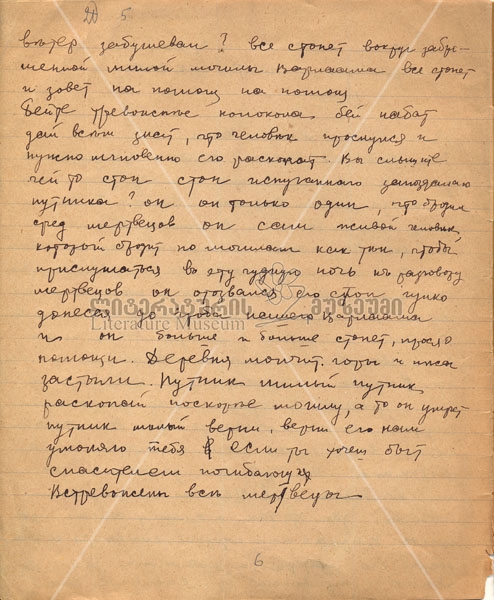 20 5
вѣтер забушевал? все стонет вокруг забро-
шенной милой могилы Варлаама все стонет
и зовет на помощ на помощ
Бейте тревожные колокола бей набат
дай всѣм знат, что человѣк проснулся и
нужно мгновенно его раскопат Вы слышите
чей то стон стон испуганного запоздалаго
путника? он он только один, что бродил
сред мертвецов он сам живой человѣк,
который бродит по могилам как тѣн, чтобы
прислушатся во эту чудную ноч къ разговору
мертвецов он отозвался его стон гулко
донесся до гроба нашего Варлаама
и он больше и больше стонет, прося
помощи. Деревня молчит. горы и лѣса
застыли. Путник милый путник
раскопай поскорѣе могилу, а то он умрет
путник милый верни, верни его нам
умоляю тебя если ты хочеш быт
спасителем погибающих
Встревожены всѣ мертвецы
ლიტერატურის მუზეუმი
Literature Museum
6